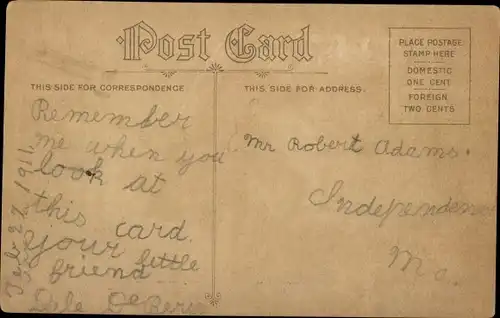 Post Card
THIS SIDE FOR CORRESPONDENCE
THIS SIDE FOR ADDRESS.
PLACE POSTAGE
STAMP HERE
DOMESTIC
ONE CENT
FOREIGN
TWO CENTS
Remember
me when you
look at
this card.
your little
friend
Mr Robert Adams.
Independence
Mo.
Feb 27 1911